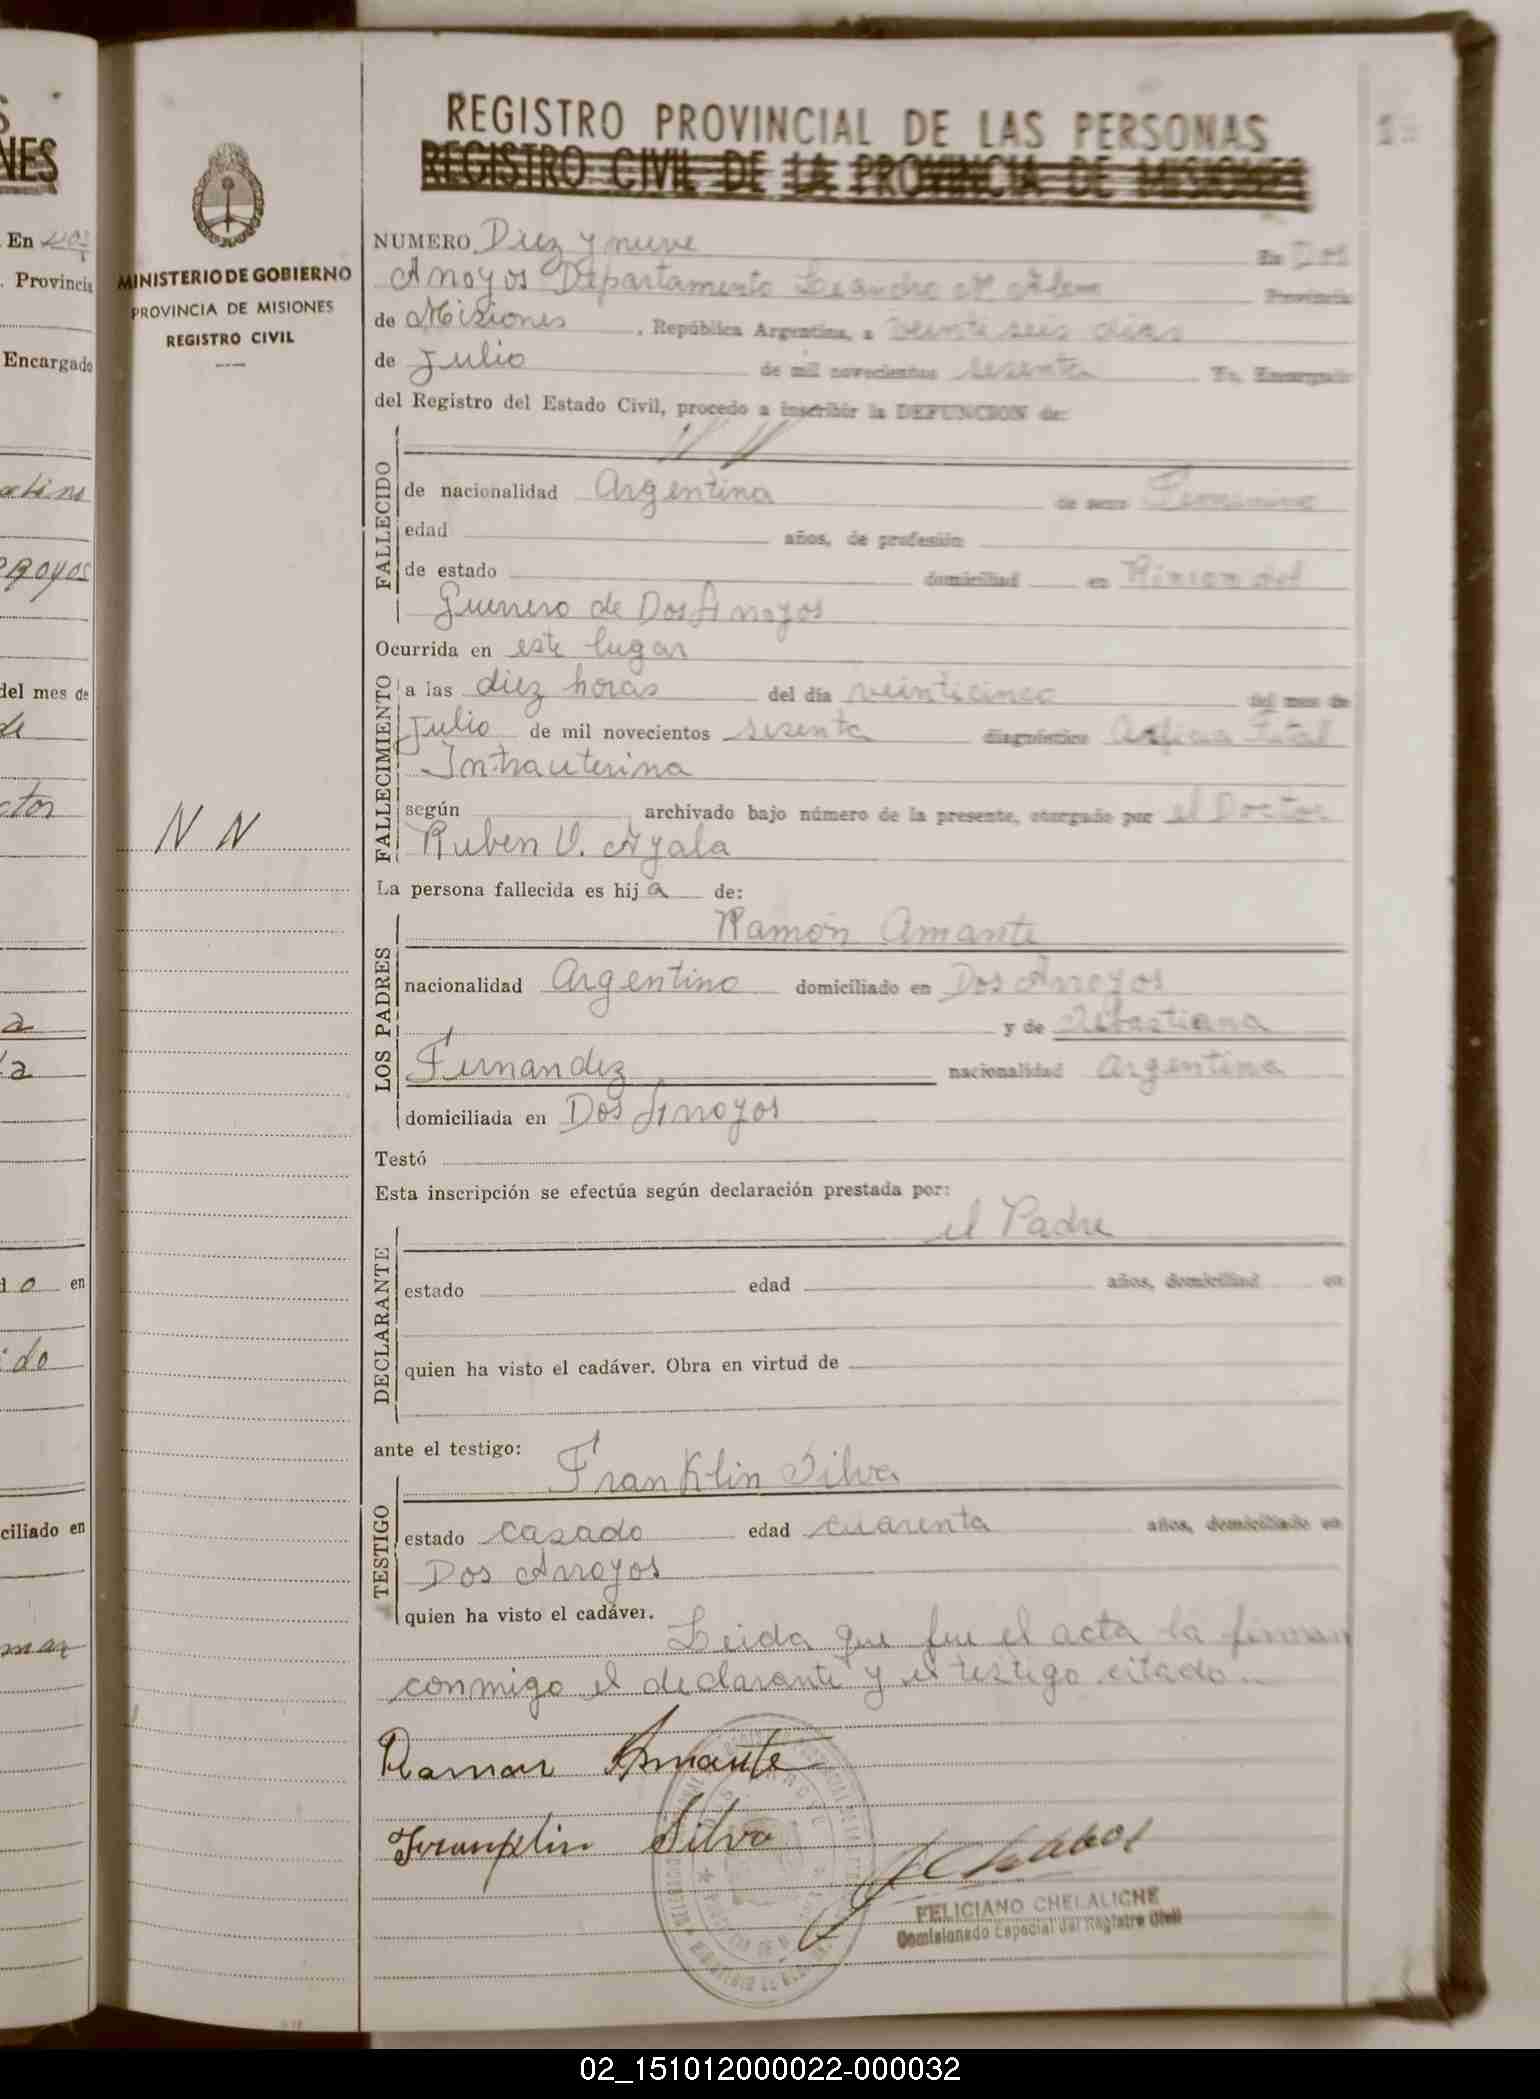 REGISTRO PROVINCIAL DE LAS PERSONAS
REGISTRO CIVIL DE LA PROVINCIA DE MISIONES
NES
En
. Provincia
Encargado
del mes de
en
do
ciliado en
MINISTERIO DE GOBIERNO
PROVINCIA DE MISIONES
REGISTRO CIVIL
N N
NUMERO Diez y nueve En Dos
Arroyos Departamento Leandro N Alem Provincia
de Misiones , República Argentina, a veinte seis dias
de Julio de mil novecientos sesenta Yo, Encargado
del Registro del Estado Civil, procedo a inscribir la DEFUNCION de:
N N
FALLECIDO
de nacionalidad Argentina de sexo Femenino
edad años, de profesión
de estado domiciliad en Rincon del
Guerrero de Dos Arroyos
Ocurrida en este lugar
FALLECIMIENTO
a las diez horas del día veinticinco del mes de
Julio de mil novecientos sesenta diagnóstico Asficia Fetal
Intrauterina
según archivado bajo número de la presente, otorgado por el Doctor
Ruben V. Ayala
La persona fallecida es hij a de:
LOS PADRES
Ramón Amante
nacionalidad Argentino domiciliado en Dos Arroyos
y de Sebastiana
Fernandez nacionalidad Argentina
domiciliada en Dos Arroyos
Testó
Esta inscripción se efectúa según declaración prestada por:
el Padre
DECLARANTE
estado edad años, domiciliad en
quien ha visto el cadáver. Obra en virtud de
ante el testigo:
Franklin Silva
TESTIGO
estado casado edad cuarenta años, domiciliado en
Dos Arroyos
quien ha visto el cadáver.
Leida que fue el acta la firman
conmigo el declarante y el testigo citado.
Ramon Amante
Franklin Silva
FELICIANO CHELALICHE
Comisionado Especial del Registro Civil
02_151012000022-000032